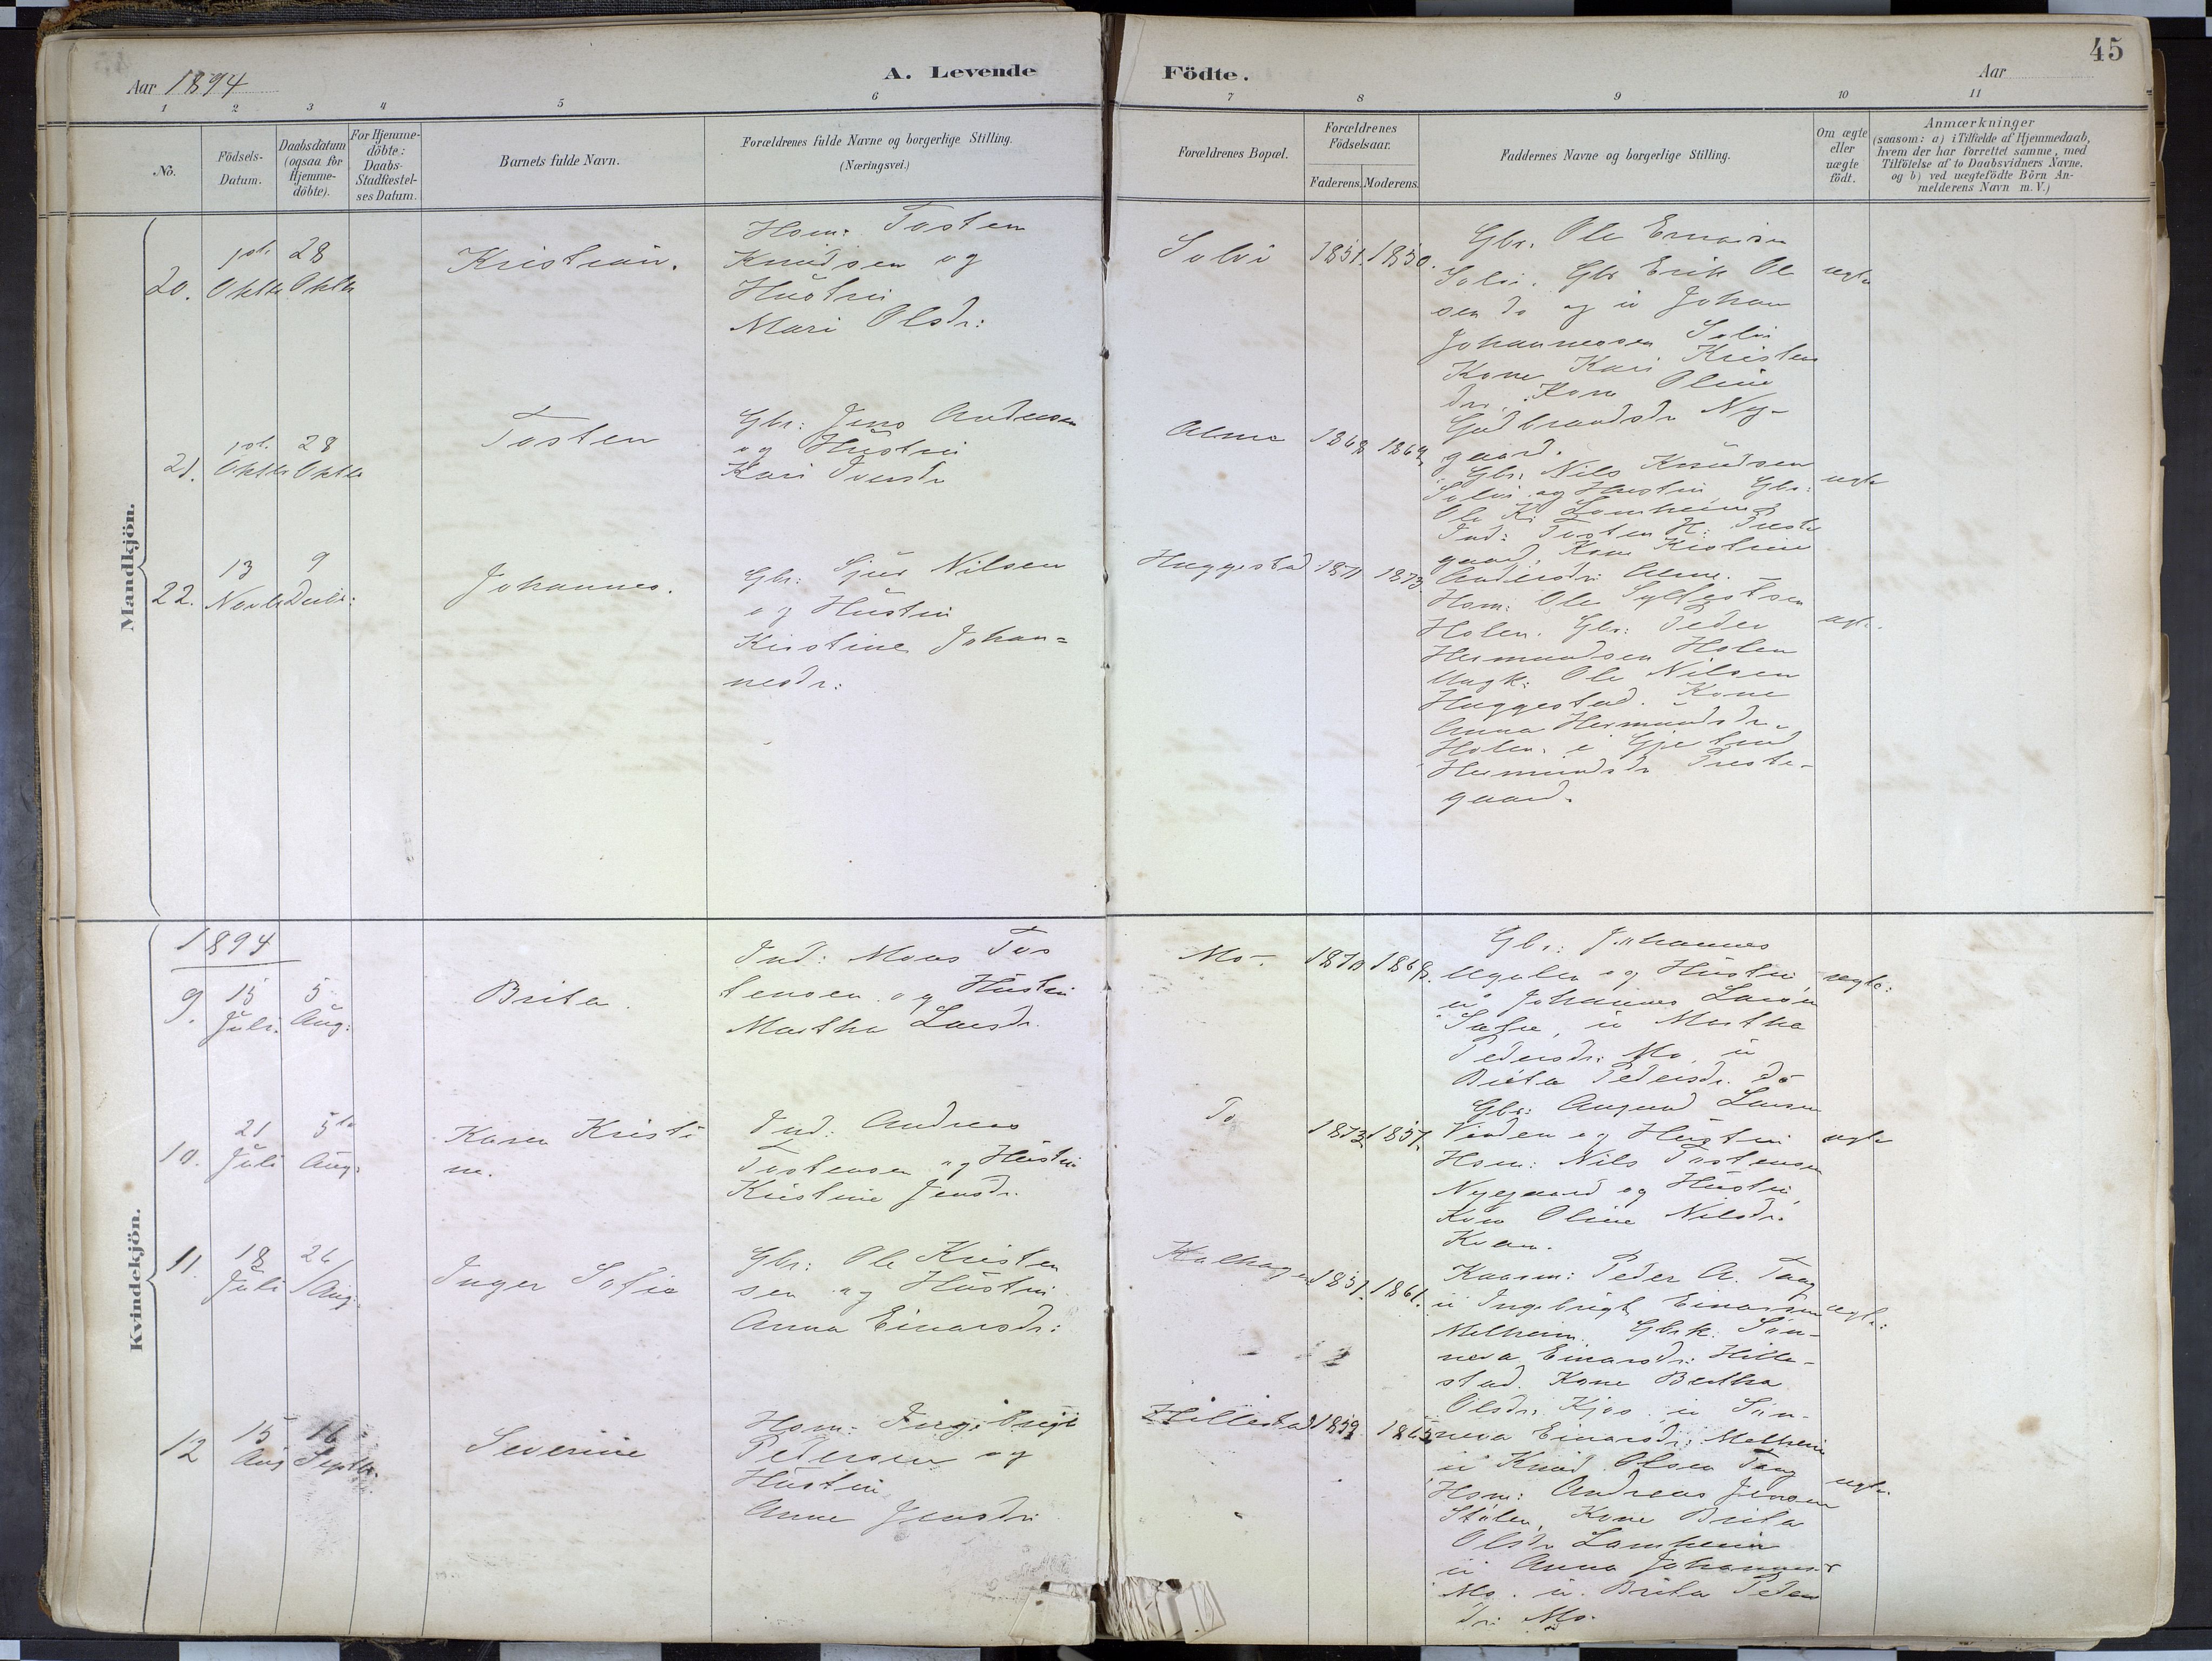 45
Aar 1894
A. Levende Födte.
Aar
1 2 3 4 5 6 7 8 9 10 11
No.
Födsels-Datum.
Daabsdatum (ogsaa for Hjemme-döbte).
For Hjemme-döbte: Daabs-Stadfæstel-ses Datum.
Barnets fulde Navn.
Forældrenes fulde Navne og borgerlige Stilling.
(Næringsvei.)
Forældrenes Bopæl.
Forældrenes Födselsaar.
Faderens. Moderens.
Faddernes Navne og borgerlige Stilling.
Om ægte eller uægte födt.
Anmærkninger
(saasom: a) i Tilfælde af Hjemmedaab,
hvem der har forrettet samme, med
Tilföielse af to Daabsvidners Navne,
og b) ved uægtefödte Börn An-
melderens Navn m. V.)
Mandkjön.
20.
Oktbr
28
Oktbr
Kristian.
Hsm: Tosten
Knudsen og
Hustru
Mari Olsdr:
Solvi
1851. 1850.
Gbr. Ole
Solvi. Gbr Erik Ol
sen do og u Johan
Johannessen Solvi
Kone Kari Kristens
dr. Kone Oline
Gudbrandsdr Ny-
gaard.
ægte
21.
Oktbr
28
Oktbr
Tosten
Gbr: Jens Andersen
og Hustru
Kari Iversdr
Alme
1868 1869
Gbr. Nils Knudsen
Solvi og Hustru, Gbr:
Ole K. Lomheim
Ind: Tosten H: Preste
gaard, Kone Kristine
Andersdr: Alme.
ægte
22.
13
Novbr
9
Decbr:
Johannes.
Gbr: Sjur Nilsen
og Hustru
Kirstine Johan=
nesdr:
Huggestad
1871 1873.
Hsm: Ole Sylfestsen
Holen. Gbr: Peder
Hermundsen Holen
Ungk: Ole Nilsen
Huggestad. Kone
Anna Hermundsdr.
Holen. u Gjertrud
Hermundsdr Preste-
gaard.
ægte.
Kvindekjön.
1894
9.
15
Juli.
5
Aug:
Brita.
Ind: Mons Tos
tensen og Hustru
Martha Larsdr.
Mo.
1870 1868.
Gbr: Johannes
og Hustru,
u Johannes Larsen
u Martha
Pedersdr: Mo, u
Brita Pedersdr. do
ægte:
10.
21
Juli
5te
Aug:
Karen Kristi
ne.
Ind: Andreas
Tostensen og Hustru
Kristine Jensdr.
To
1873 1857.
Gbr: Larsen
og Hustru
Hsm: Nils Tostensen
Nygaard og Hustru,
Kone Oline Nilsdr.
Kvam.
ægte
11.
18
Juli
26/
Aug:
Inger Sofie
Gbr: Ole Kristen
sen og Hustru
Anna Einarsdr:
Kalhagen
1857. 1861.
Kaarm: Peder A. Taug
u Ingebrigt Einarsen
Melheim. Gbrk. Sün-
neva Einarsdr: Hille-
stad. Kone Bertha
Olsdr. Kjos. u Sün-
neva Einarsdr: Melheim
u Knud Olsen Taug
ægte:
12
15
Aug
16
Septbr.
Severine
Hsm: Ingebrigt
Pedersen og
Hustru
Anne Jensdr:
Hillestad
1859 1865
Hsm: Andreas Jensen
Stølen, Kone Brita
Olsdr Lomheim
u Anna Johannesd
Mo. u. Brita Peders
dr: Mo.
ægte.